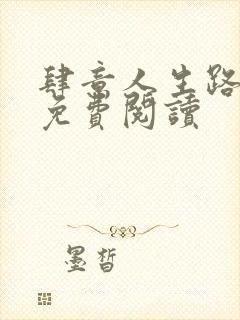 肆意人生路
免費閱讀
墨晳